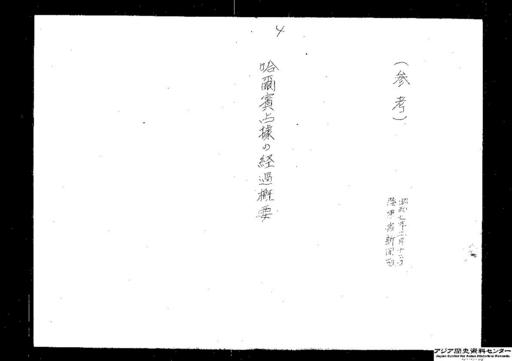 (参考)
昭和七年二月十六日
陸軍省新聞班
哈爾賓占據の経過概要
4
アジア歴史資料センター
Japan Center for Asian Historical Records